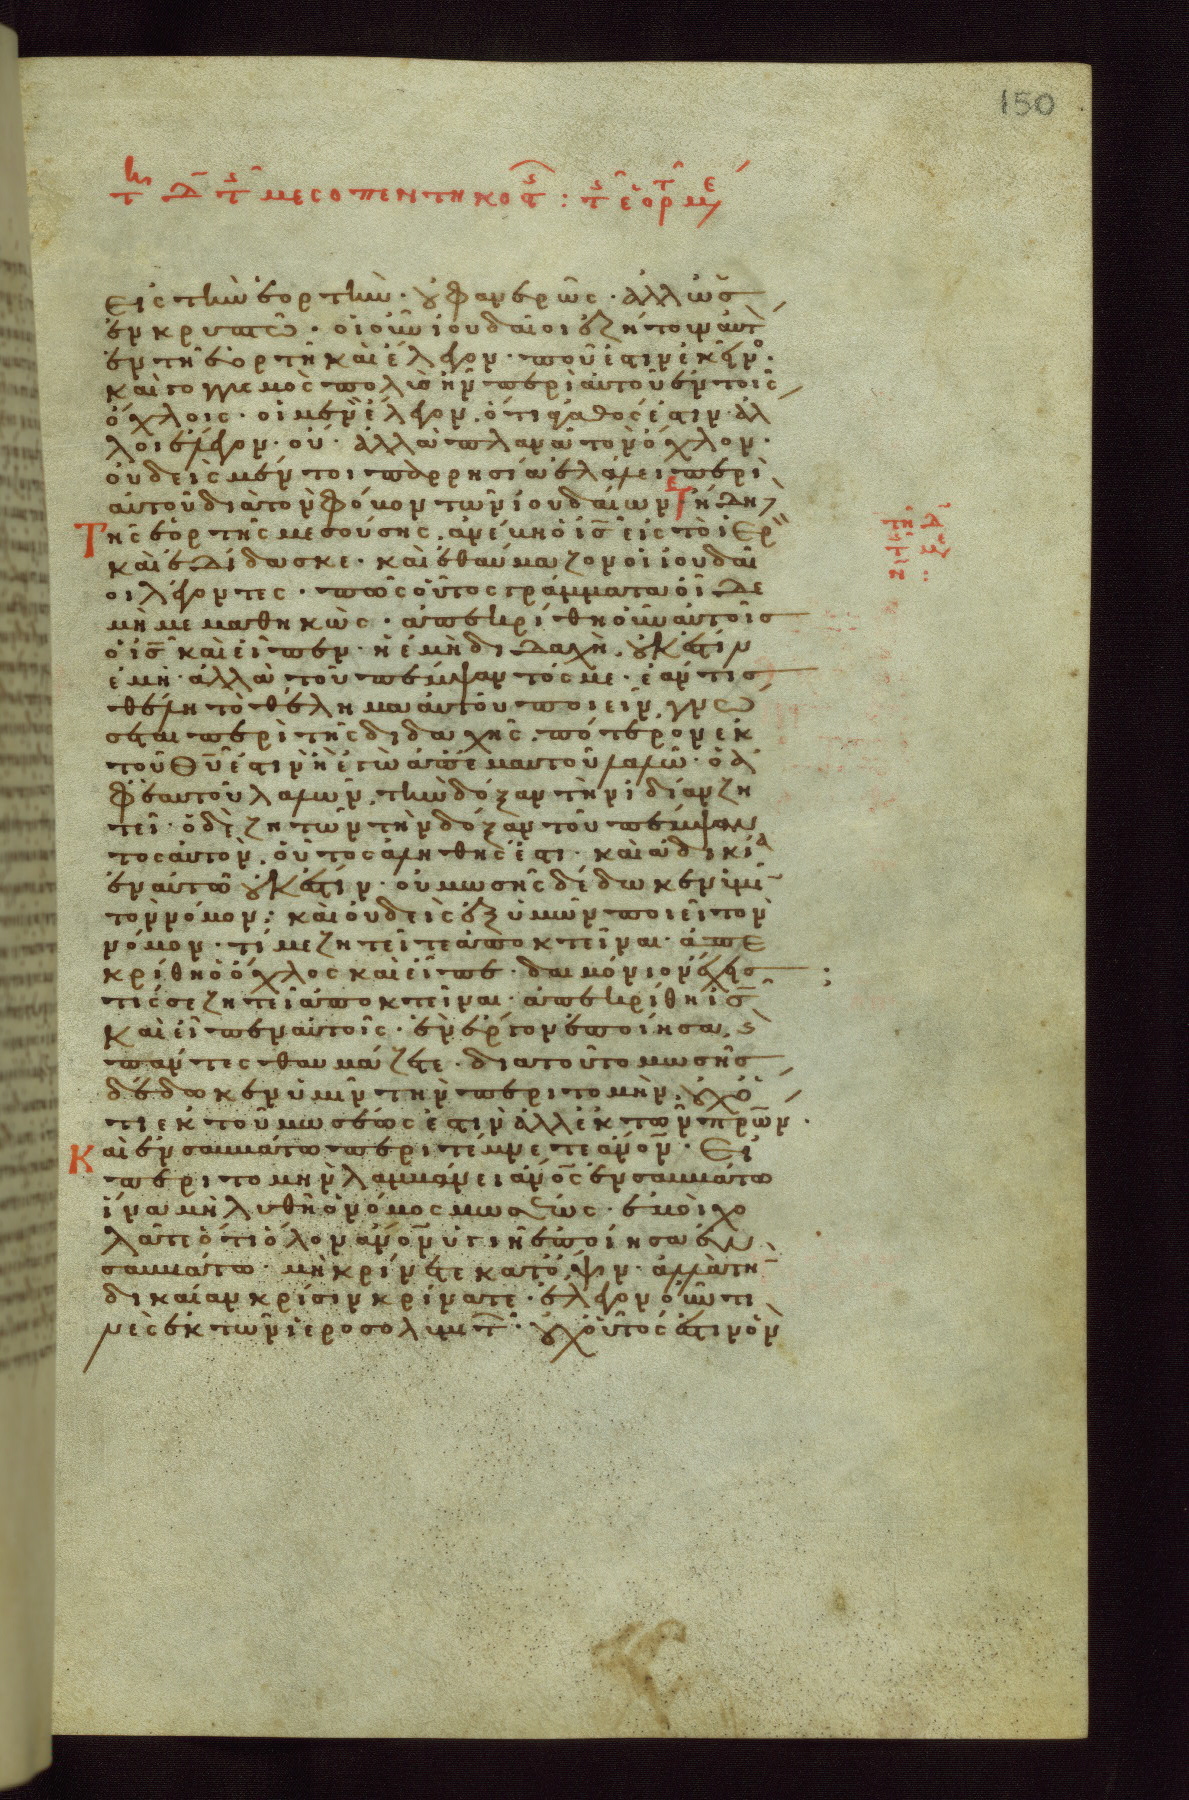 150
τη δ τς μεσοπεντηκοστς : τς ἑορτ με
εἰς τὴν ἑορτὴν · οὐ φανερῶς · ἀλλ' ὡς
ἐν κρυπτῶ · οἱ οὖν ἰουδαῖοι ἐζήτουν αὐτὸ
ἐν τῆ ἑορτῆ καὶ ἔλεγον · ποῦ ἐστιν ἐκεῖνο.
καὶ γογγυσμὸς πολὺς ἦν περὶ αὐτοῦ ἐν τοῖς
ὄχλοις · οἱ μὲν ἔλεγον, ὅτι ἀγαθός ἐστιν · ἄλ
λοι ἔλεγον · οὔ · ἀλλὰ πλανᾶ τὸν ὄχλον ·
οὐδεὶς μέντοι παρρησία ἐλάλει περὶ
αὐτοῦ διὰ τὸν φόβον τῶν ἰουδαίων · ἤδη
Τῆς ἑορτῆς μεσούσης, ἀνέβη ὁ ις εἰς τὸ ἱερ
καὶ ἐδίδασκε · καὶ ἐθαύμαζον οἱ ἰουδαῖ
τη δ
τς με
ν :
οι λέγοντες · πῶς οὗτος γράμματα οἶδε
μὴ μεμαθηκώς · ἀπεκρίθη οὖν αὐτοῖς
ὁ ις καὶ εἶπεν · ἡ ἐμὴ διδαχὴ, οὐκ ἔστιν
ἐμὴ · ἀλλὰ τοῦ πέμψαντός με · ἐάν τις
θέλη τὸ θέλημα αὐτοῦ ποιεῖν, γνώ
σεται περὶ τῆς διδαχῆς, πότερον ἐκ
τοῦ θυ ἐστιν ἢ ἐγὼ ἀπ' ἐμαυτοῦ λαλῶ · ὁ ἀ
φ' ἑαυτοῦ λαλῶν, τὴν δόξαν τὴν ἰδίαν ζη
τεῖ · ὁ δὲ ζητῶν τὴν δόξαν τοῦ πέμψαν
τος αὐτὸν, οὗτος ἀληθής ἐστι · καὶ ἀδικία
ἐν αὐτῶ οὐκ ἔστιν · οὐ μωσῆς δέδωκεν ὑμῖ
τὸν νόμον ; καὶ οὐδεὶς ἐξ ὑμῶν ποιεῖ τὸν
νόμον · τί με ζητεῖτε ἀποκτεῖναι · ἀπε
κρίθη ὁ ὄχλος καὶ εἶπε · δαιμόνιον ἔχεις ;
τίς σε ζητεῖ ἀποκτεῖναι · ἀπεκρίθη ις
καὶ εἶπεν αὐτοῖς · ἓν ἔργον ἐποίησα, ϗ
πάντες θαυμάζετε · διὰ τοῦτο μωσῆς
δέδωκεν ὑμῖν τὴν περιτομὴν, οὐχ ὅ
τι ἐκ τοῦ μωσέως ἐστὶν ἀλλ' ἐκ τῶν πρων ·
Καὶ ἐν σαββάτω περιτέμνετε ανον · Εἰ
περιτομὴν λαμβάνει ανος ἐν σαββάτω
ἵνα μὴ λυθῆ ὁ νόμος μωσέως · ἐμοὶ χο
λᾶτε ὅτι ὅλον ανον ὑγιῆ ἐποίησα ἐν
σαββάτω · μὴ κρίνετε κατ' ὄψιν · ἀλλὰ τὴ
δικαίαν κρίσιν κρίνατε · ἔλεγον οὖν τι
νὲς ἐκ τῶν ἱεροσολυμιτ · οὐχ οὗτός ἐστιν ὃν